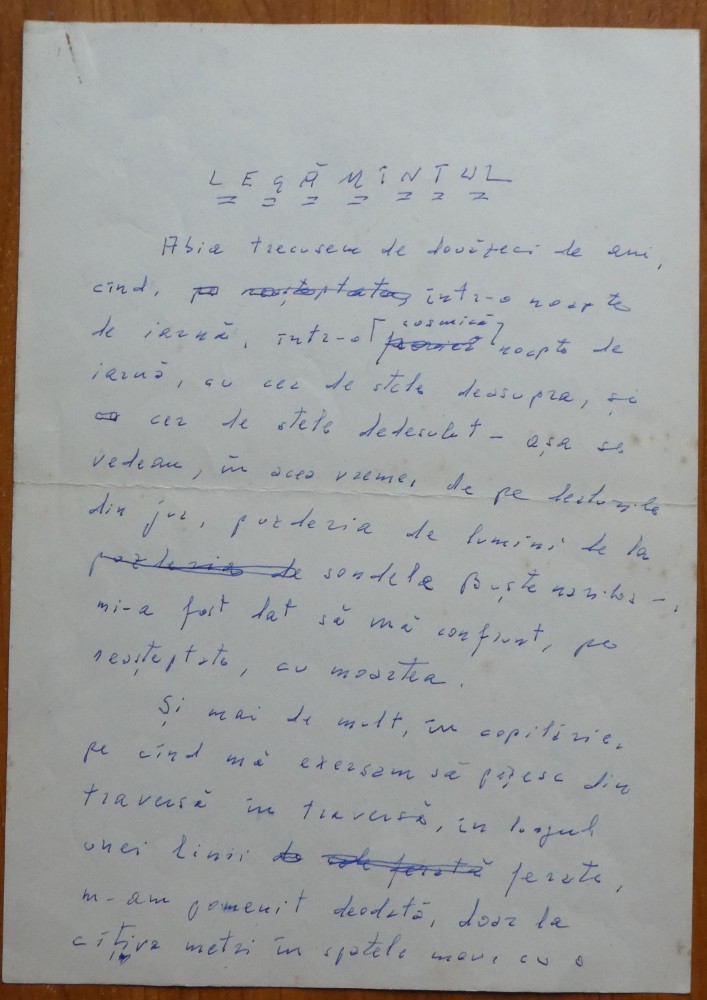 LEGĂMÎNTUL
Abia trecusem de douăzeci de ani,
cînd, pe neașteptate, într-o noapte
de iarnă, într-o cosmică noapte de
iarnă, cu cer de stele deasupra, și
cu cer de stele dedesubt – așa se
vedeau, în acea vreme, de pe dealurile
din jur, puzderia de lumini de la
puzderia de sondele Buștenarilor –,
mi-a fost dat să mă confrunt, pe
neașteptate, cu moartea.
Și mai de mult, în copilărie,
pe cînd mă exersam să pășesc din
traversă în traversă, în lungul
unei linii de cale ferată ferate,
m-am pomenit deodată, doar la
cîțiva metri în spatele meu, cu o